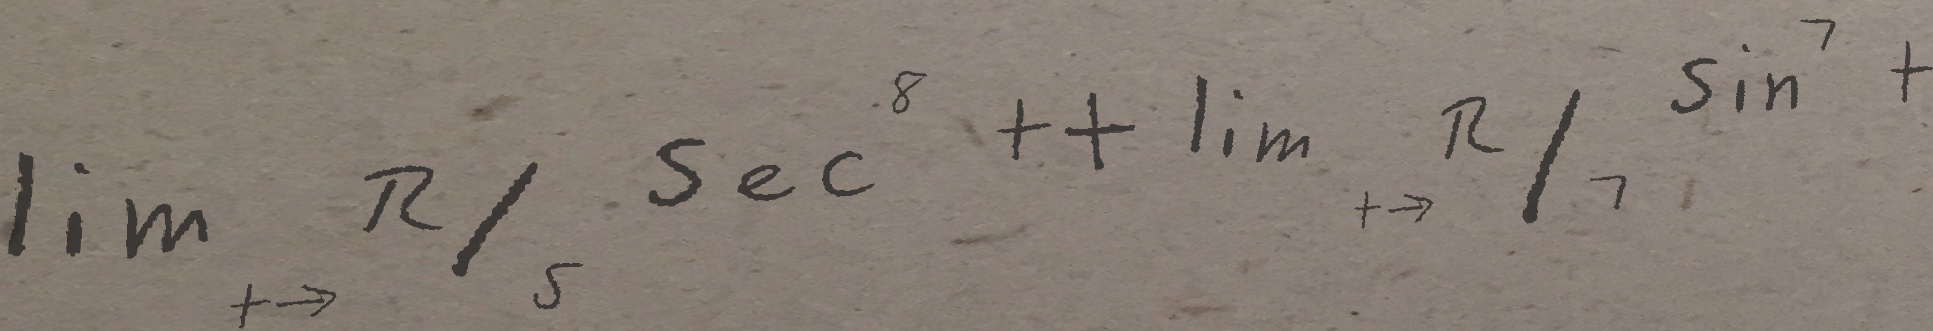 lim t→ π/5 sec^8 t + lim t→ π/7 sin^7 t